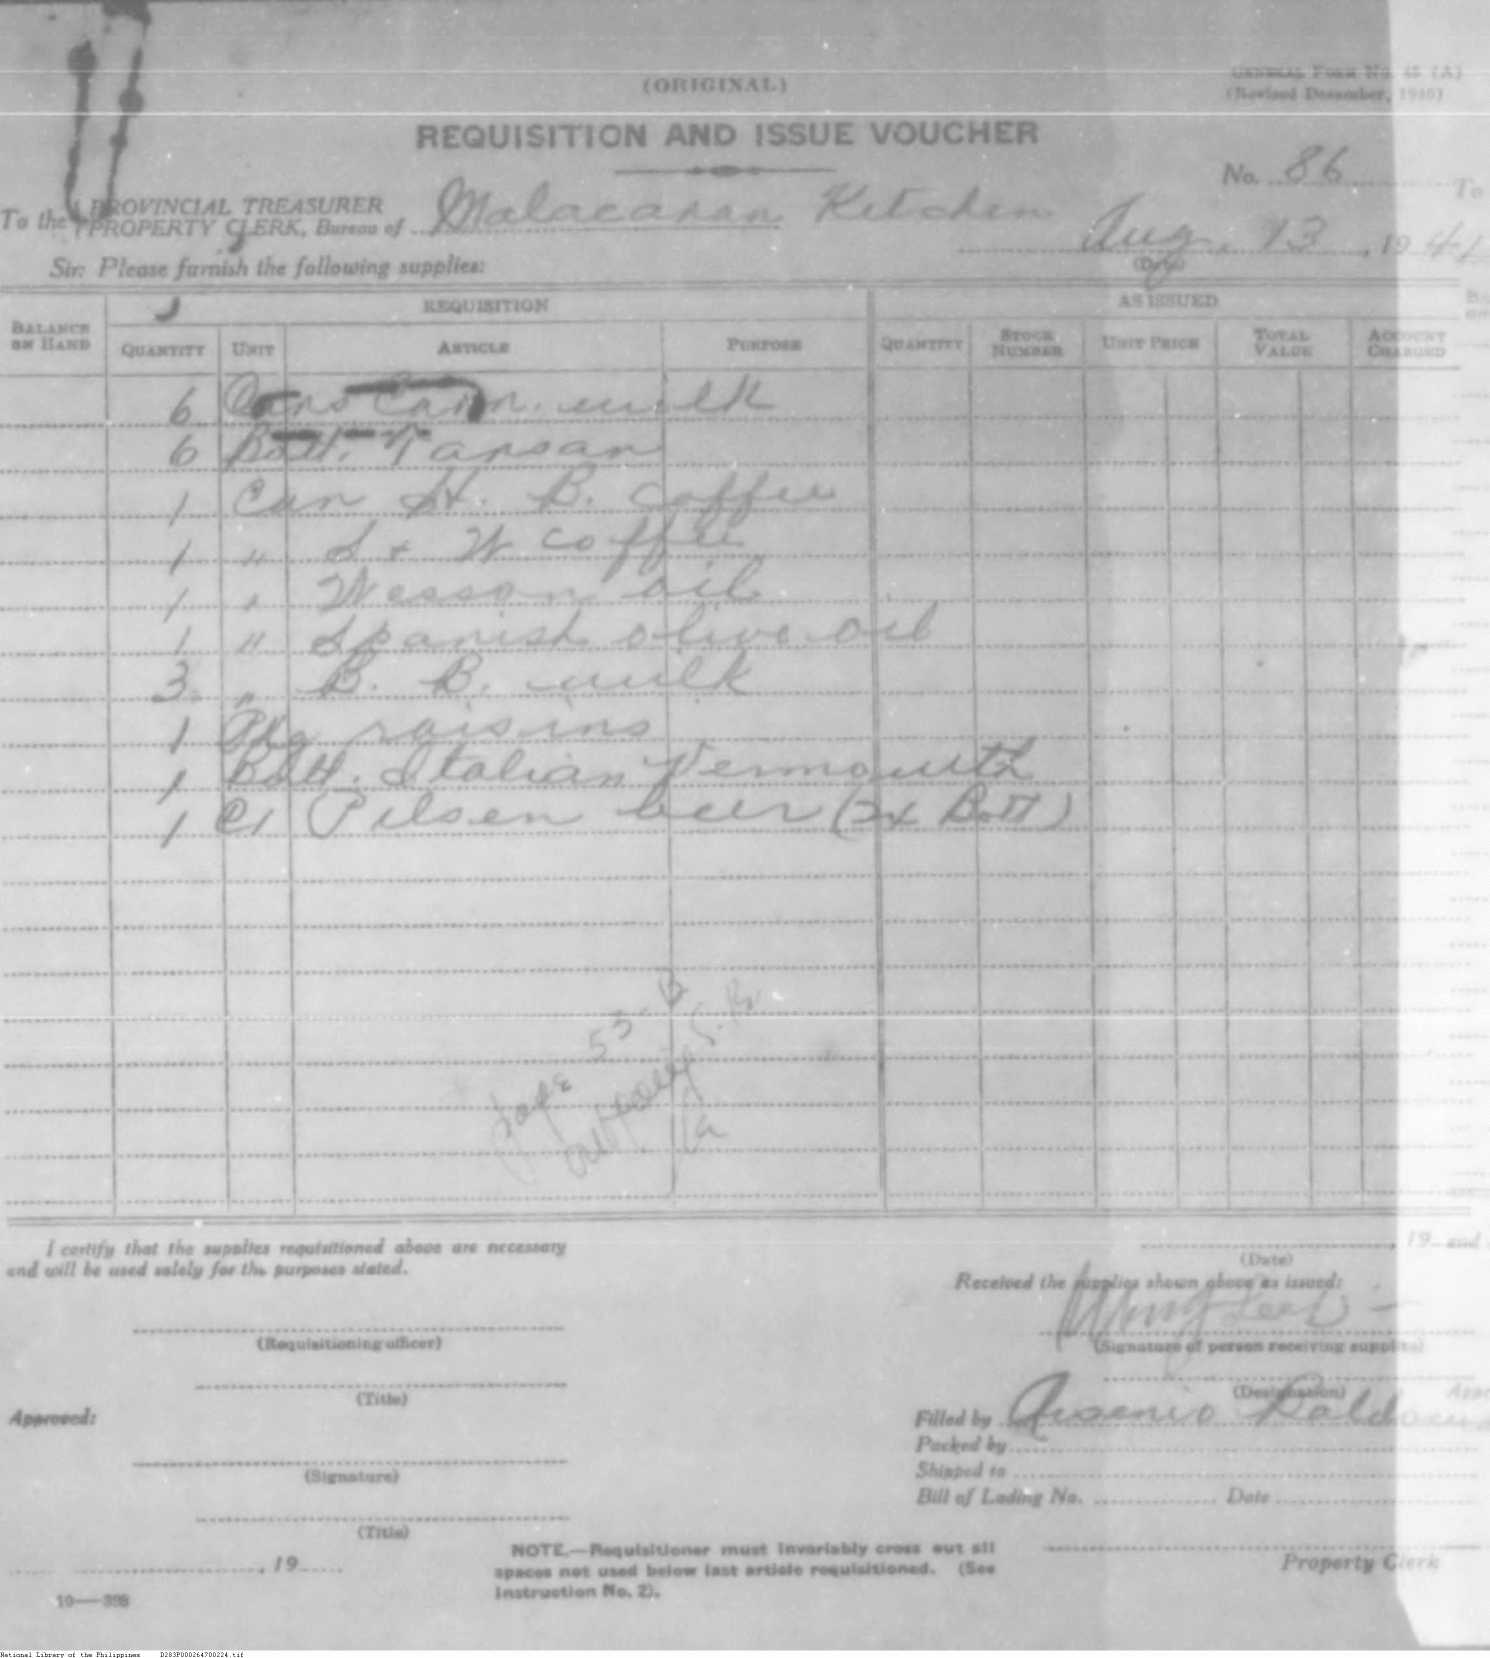 (ORIGINAL)
GENERAL FORM No. 45 (A)
(Revised December, 1940)
REQUISITION AND ISSUE VOUCHER
No. 86
To the PROVINCIAL TREASURER
PROPERTY CLERK, Bureau of Malacanan Kitchen
Aug. 13, 19
(Date)
Sir: Please furnish the following supplies:
REQUISITION AS ISSUED
BALANCE ON HAND QUANTITY UNIT ARTICLE PURPOSE QUANTITY STOCK NUMBER UNIT PRICE TOTAL VALUE ACCOUNT CHARGED
6 Cans Carn. milk
6 Bott. Tansan
1 Can H. B. coffee
1 " S + W coffee
1 " Wesson oil
1 " Spanish olive oil
3 " B. B. milk
1 Pkg raisins
1 Bott. Italian Vermouth
1 Cs Pilsen beer (24 Bott)
page 53-B
I certify that the supplies requisitioned above are necessary
and will be used solely for the purposes stated.
, 19
(Date)
Received the supplies shown above as issued:
(Requisitioning officer)
(Signature of person receiving supplies)
(Title)
(Designation)
Approved:
Filled by Arsenio
Packed by
Shipped to
(Signature)
Bill of Lading No. Date
(Title)
, 19
NOTE.—Requisitioner must invariably cross out all
spaces not used below last article requisitioned. (See
Instruction No. 2).
Property Clerk
10—398
National Library of the Philippines D283P000264700224.tif